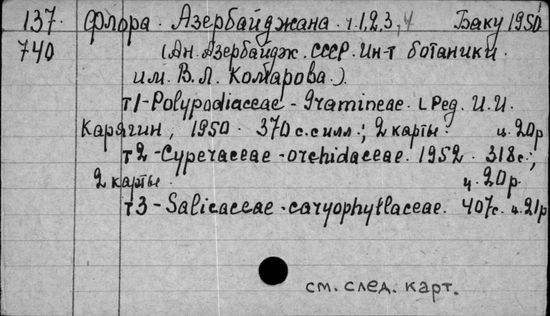 137. Флора Азербайджана. т.1,2,3,4 Баку 1950
740 (Ан. Азербайдж. СССР. Ин-т ботаники
им. В. Л. Комарова.)
т1-Polypodiaceae - Gramineae. [Ред. И. И.
Карягин, 1950. 370 с. с илл.; 2 карты. ц. 20р
т2-Cyperaceae - orchidaceae. 1952. 318с.;
2 карты. ц. 20р.
т3-Salicaceae - caryophyllaceae. 407с. ц. 21р
см. след. карт.